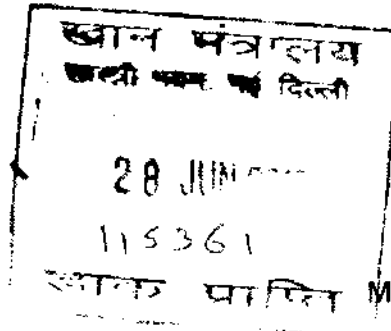 खान मंत्रालय
शास्त्री भवन नई दिल्ली
28 JUN
115361
प्राप्ति M